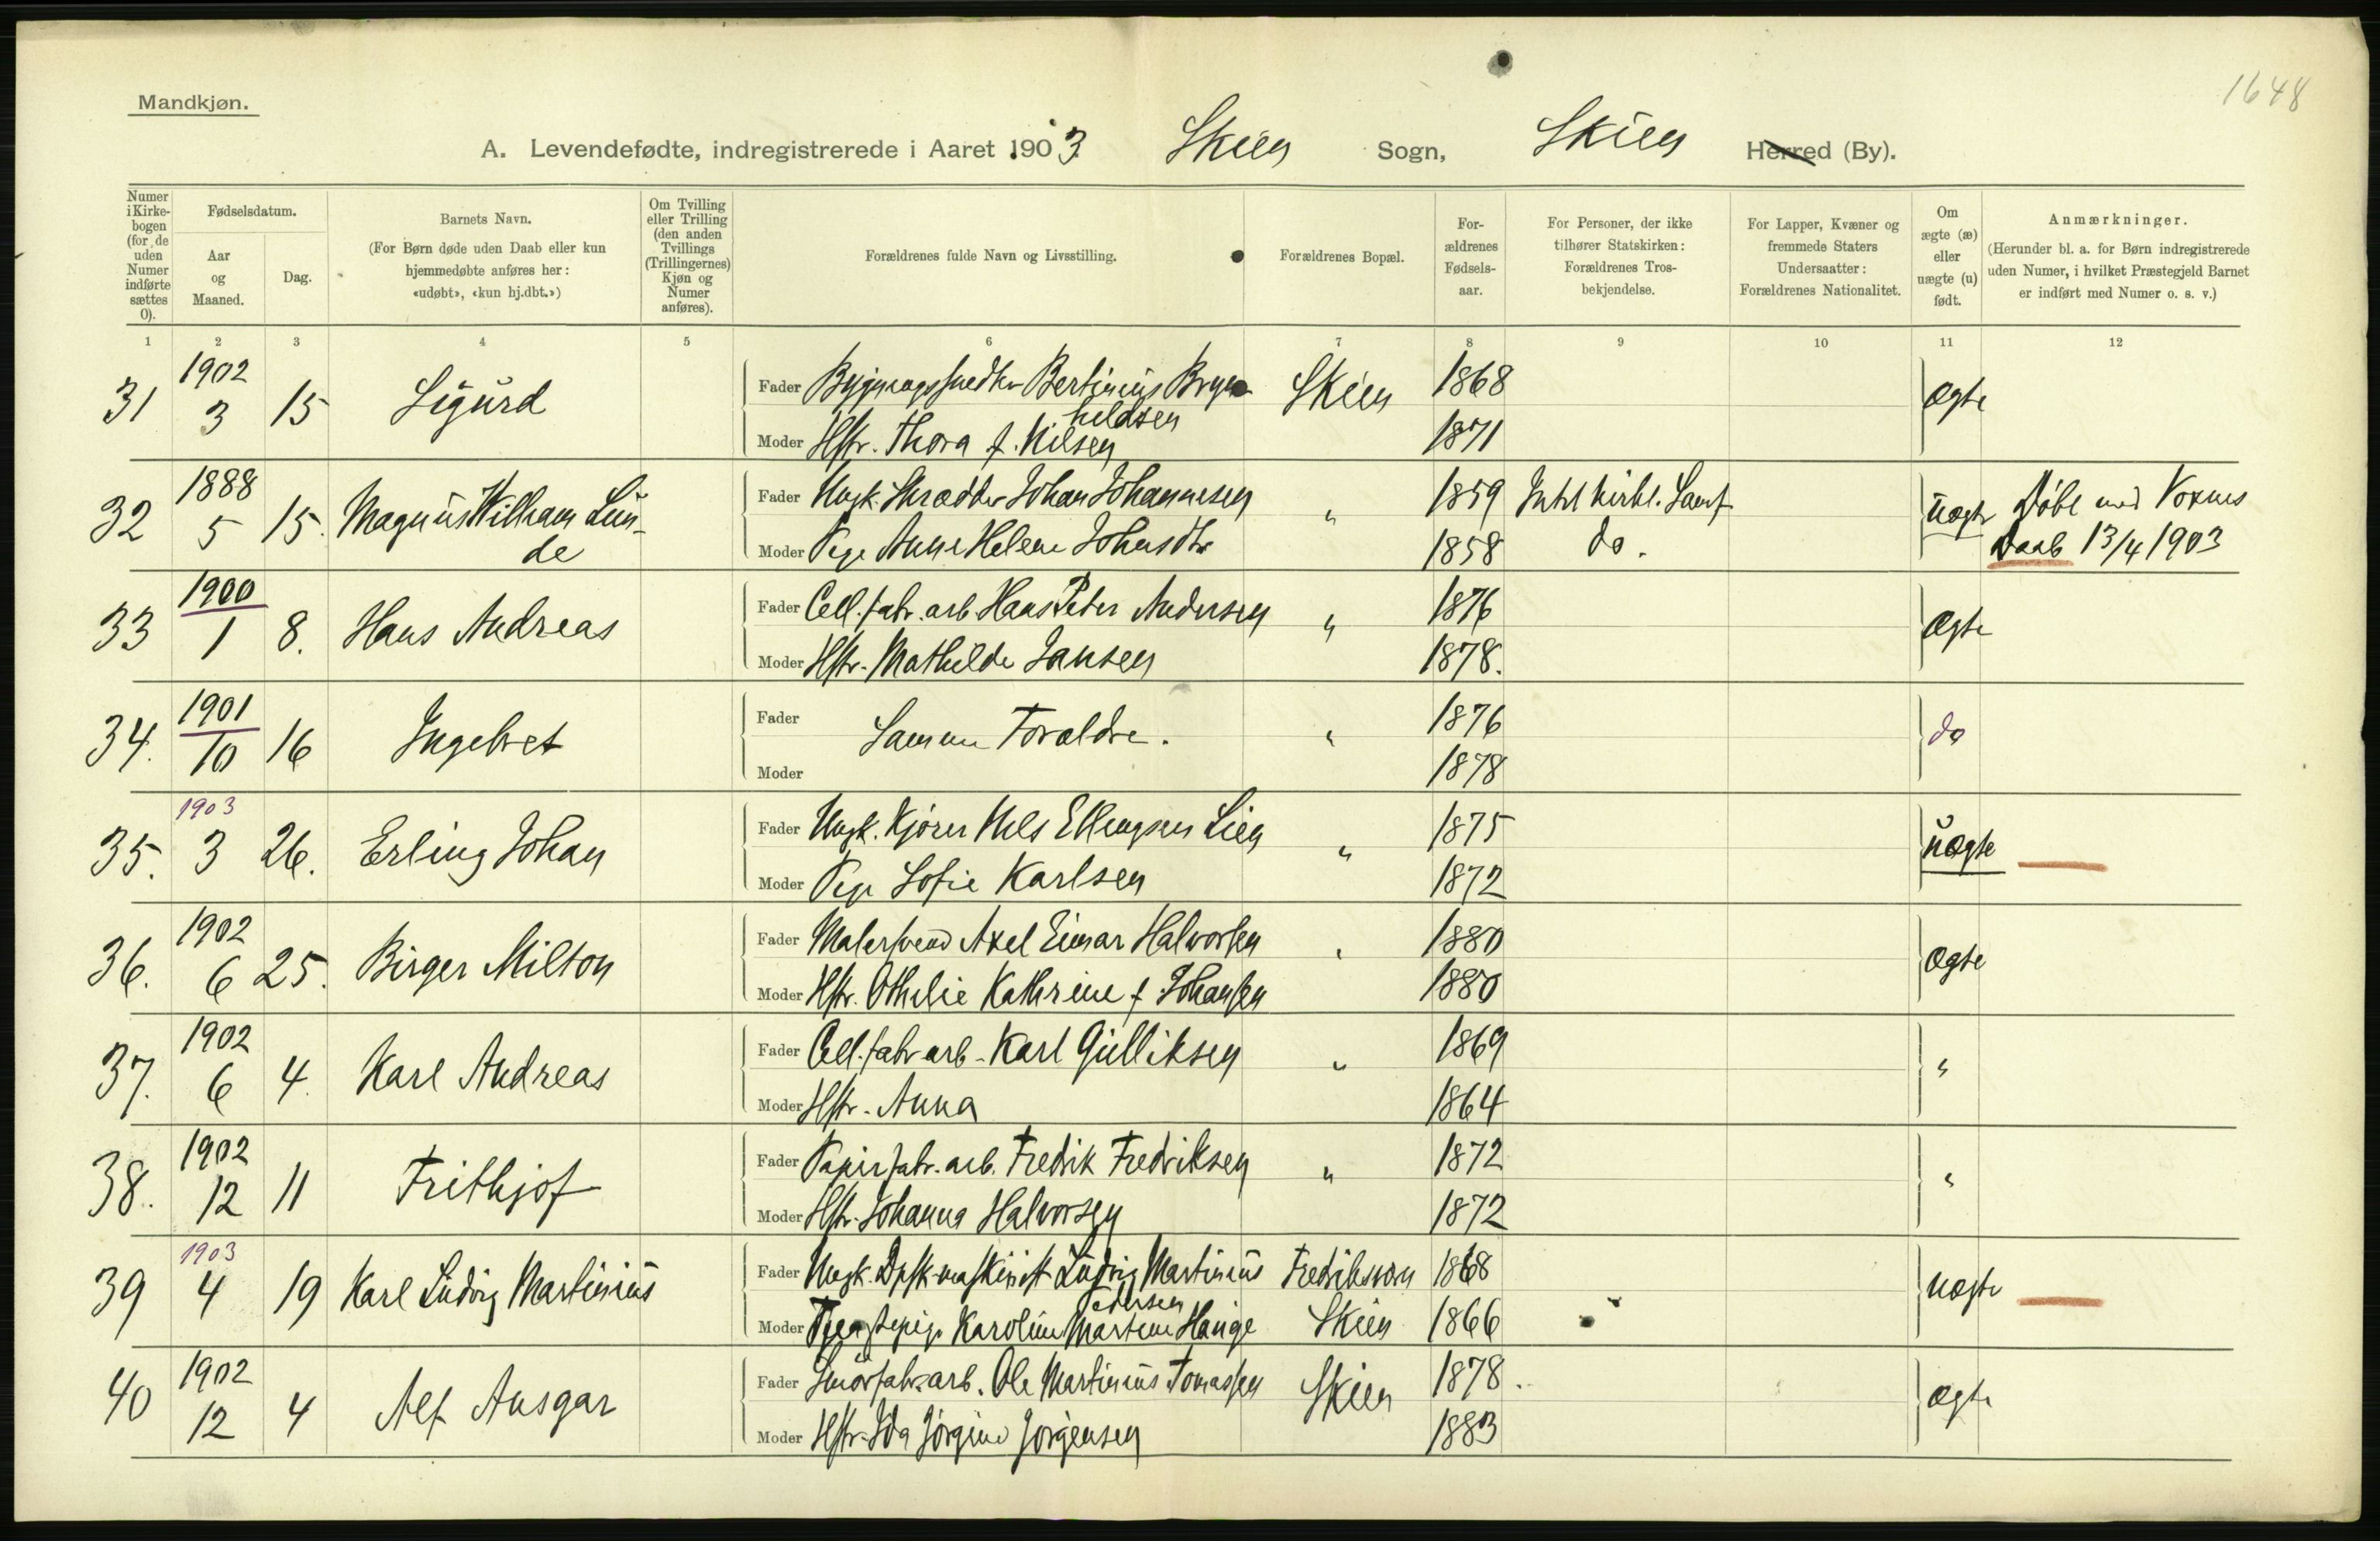 1648
Mandkjøn.
A. Levendefødte, indregistrerede i Aaret 1903 Skien Sogn, Skien Herred (By).
Numer i Kirkebogen (for de uden Numer indførte sættes 0).
Fødselsdatum.
Aar og Maaned.
Dag.
Barnets Navn.
(For Børn døde uden Daab eller kun hjemmedøbte anføres her: «udøbt», «kun hj.dbt.»)
Om Tvilling eller Trilling (den anden Tvillings (Trillingernes) Kjøn og Numer anføres).
Forældrenes fulde Navn og Livsstilling.
Forældrenes Bopæl.
Forældrenes Fødselsaar.
For Personer, der ikke tilhører Statskirken: Forældrenes Trosbekjendelse.
For Lapper, Kvæner og fremmede Staters Undersaatter: Forældrenes Nationalitet.
Om ægte (æ) eller uægte (u) født.
Anmærkninger.
(Herunder bl. a. for Børn indregistrerede uden Numer, i hvilket Præstegjeld Barnet er indført med Numer o. s. v.)
1 2 3 4 5 6 7 8 9 10 11 12
31 1902 3 15 Sigurd
Fader Bertinius Brynhildsen Skien 1868 Ægte
Moder Hstr. Thora f. Nilsen 1871
32 1888 5 15. Magnus William Lunde
Fader Ungk. Skrædder Johan Johannesen " 1859 uægte Døbt med Voxnes
Moder Pige Anne Helene Johnsdtr 1858 do. Daab 13/4 1903
33 1900 1 8. Hans Andreas
Fader Cell. fabr. arb. Hans Peter Andersen " 1876 Ægte
Moder Hstr. Mathilde Jansen 1878.
34. 1901 10 16 Ingebret
Fader Samme Forældre. " 1876 do
Moder 1878
35. 1903 3 26. Erling Johan
Fader Ungk. Kjører Nels Ellengsen Lien " 1875 uægte
Moder Pige Sofie Karlsen 1872
36. 1902 6 25. Birger Milton
Fader Malersvend Axel Einar Halvorsen " 1880 Ægte
Moder Hstr. Othelie Kathrine f Johansen 1880
37. 1902 6 4. Karl Andreas
Fader Cell. fabr arb. Karl Gulliksen " 1869 "
Moder Hstr. Anna 1864
38. 1902 12 11 Frithjof
Fader Papirfabr. arb. Fredrik Fredriksen " 1872 "
Moder Hstr. Johanna Halvorsen 1872
39 1903 4 19 Karl Ludvig Martinius
Fader Ungk. Dpsk. maskinist Ludvig Martinius Pedersen Fredriksværn 1868 uægte
Moder Karoline Martine Hauge Skien 1866
40 1902 12 4 Alf Ansgar
Fader Smørfabr. arb. Ole Martinius Tomassen Skien 1878. ægte
Moder Hstr. Ida Jørgine Jørgensen 1883